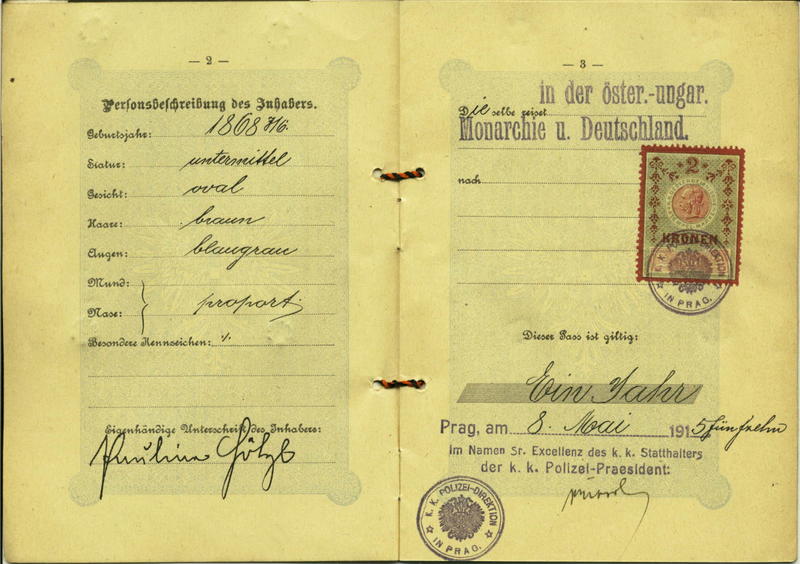 — 2 —
Personsbeschreibung des Inhabers.
Geburtsjahr: 1868
Statur: untermittel
Gesicht: oval
Haare: braun
Augen: blaugrau
Mund:
Nase: proport.
Besondere Kennzeichen: %
Eigenhändige Unterschrift des Inhabers:
Pauline Götzl
— 3 —
in der öster.-ungar.
Dieselbe reiset
Monarchie u. Deutschland.
nach
2
KRONEN
K. K. POLIZEI-DIREKTION
IN PRAG.
Dieser Pass ist giltig:
Ein Jahr
Prag, am 8. Mai 1915 fünfzehn
Im Namen Sr. Excellenz des k. k. Statthalters
der k. k. Polizei-Praesident:
K. K. POLIZEI-DIREKTION
IN PRAG.